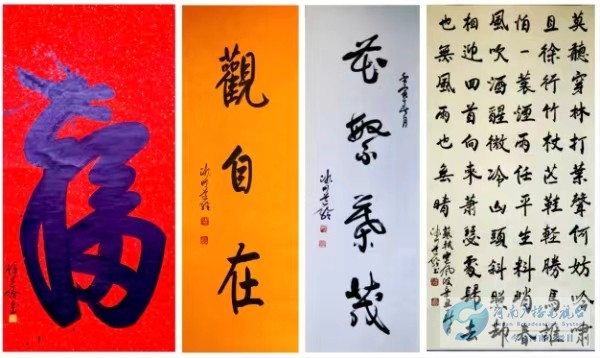 福
觀自在
花繁葉茂
莫聽穿林打葉聲何妨吟嘯
且徐行竹杖芒鞋輕勝馬誰
怕一蓑煙雨任平生料峭春
風吹酒醒微冷山頭斜照卻
相迎回首向來蕭瑟處歸去
也無風雨也無晴
蘇軾定風波
河南广播电视台